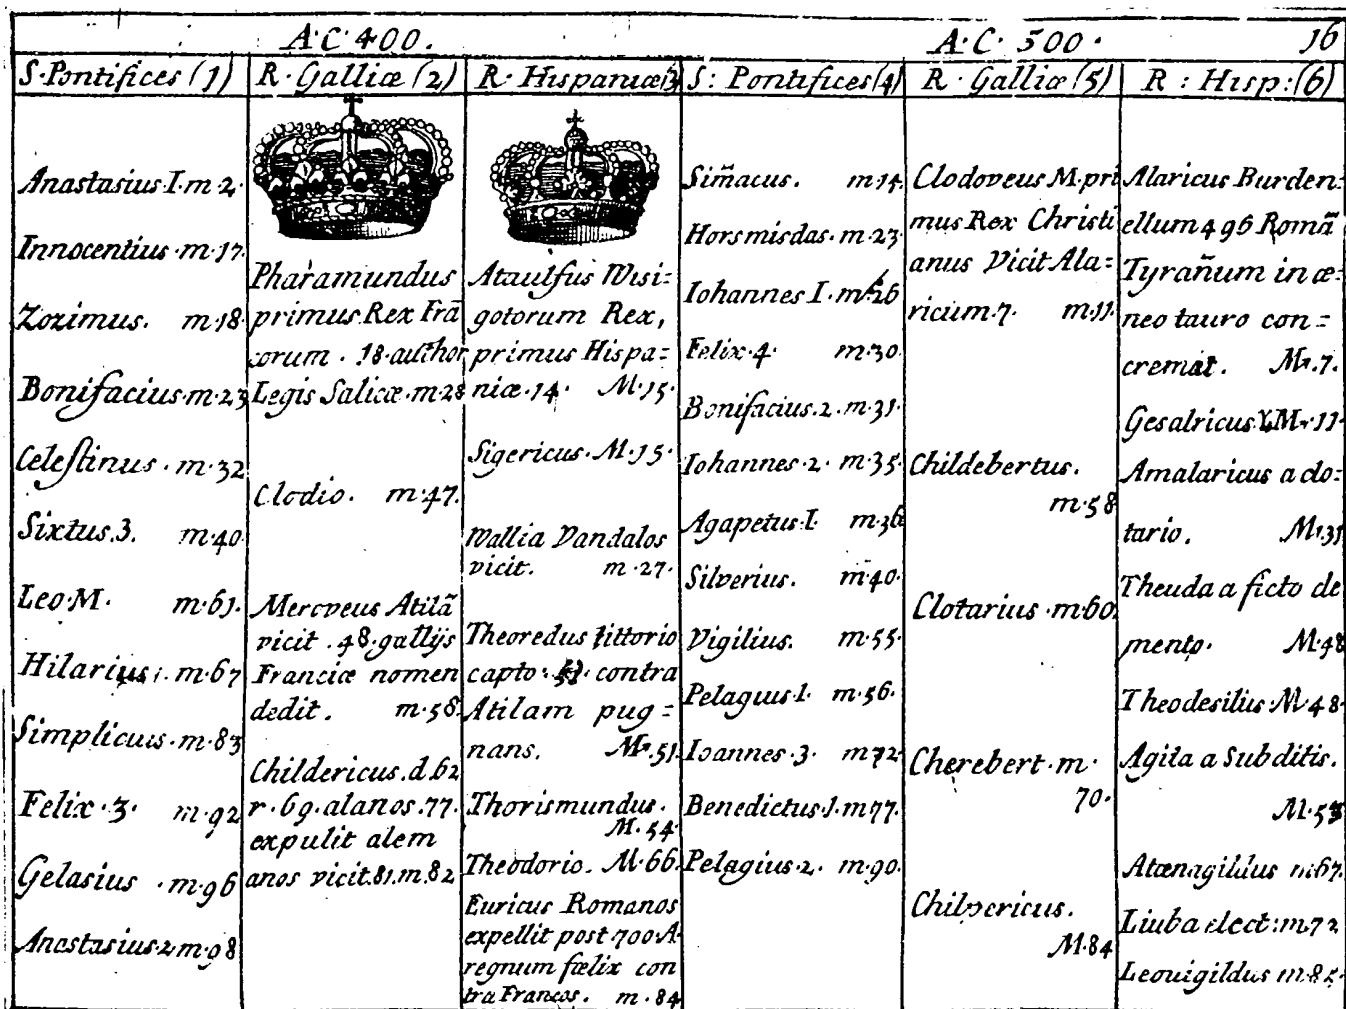 A·C·400.
A·C· 500·
16
S·Pontifices (1)
R·Galliæ (2)
R·Hispaniæ(3
S: Pontifices(4)
R·Galliæ(5)
R: Hisp:(6)
Anastasius·I·m·2·
Innocentius·m·17·
Zozimus. m·18·
Bonifacius·m·23
Celestinus·m·32
Sixtus.3. m·40
Leo·M· m·61·
Hilarius· m·67
Simplicius·m·83
Felix·3· m·92
Gelasius·m·96
Anastasius·2·m·98
Pharamundus
primus.Rex Frã
corum. 18·author
Legis Salicæ·m·28
Clodio. m·47.
Meroveus Atilã
vicit.48.gallijs
Franciæ nomen
dedit. m·58.
Childericus.d.62
r·69.alanos.77.
expulit alem
anos vicit.81.m.82
Ataulfus Wisi:
gotorum Rex,
primus Hispa:
niæ·14· M·15·
Sigericus·M·15·
Wallia Vandalos
vicit. m·27·
Theoredus littorio
capto· contra
Atilam pug:
nans. M·51.
Thorismundus.
M.54
Theodoric. M·66.
Euricus Romanos
expellit post·700·A·
regnum fœlix con
tra Francos. m·84
Sim̃acus. m·14
Horsmisdas·m·23·
Iohannes I·m·26
Felix·4· m·30
Bonifacius.2·m·31·
Iohannes·2· m·35·
Agapetus·I· m·36
Silverius. m·40·
Vigilius. m·55·
Pelagius·1· m·56·
Ioannes·3· m·72
Benedictus·1·m·77·
Pelagius·2· m·90·
Clodoveus M.pri
mus Rex Christi
anus Vicit Ala:
ricum·7· m·11·
Childebertus.
m·58
Clotarius·m·60.
Cherebert·m·
70·
Chilpericus.
M·84
Alaricus Burden:
ellum 496 Romã
Tyrañum in æ:
neo tauro con:
cremat. M·7.
Gesalricus M·11·
Amalaricus a clo:
tario. M·31
Theuda a ficto de
mento. M·48
Theodesilus·M·48·
Agila a Subditis.
M·53
Atanagildus m·67.
Liuba elect:m·72
Leouigildus m·85·